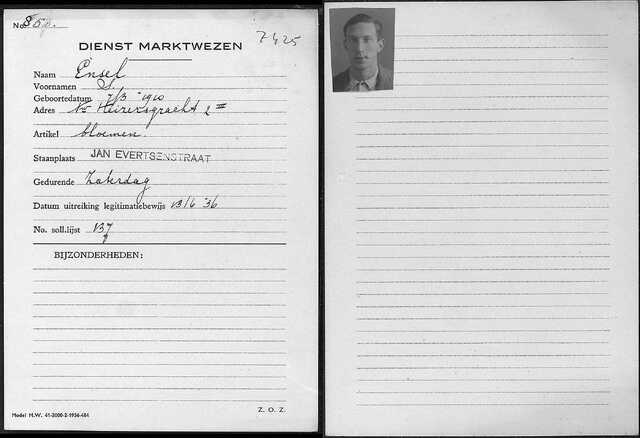 No. 85
7425
DIENST MARKTWEZEN
Naam Ensel
Voornamen S.
Geboortedatum 7/3 - 1910
Adres Nw Keizersgracht 2 III
Artikel bloemen.
Staanplaats JAN EVERTSENSTRAAT
Gedurende Zaterdag
Datum uitreiking legitimatiebewijs 13/6 '36
No. soll.lijst 137
BIJZONDERHEDEN:
Model M.W. 41-2000-2-1936-484
Z. O. Z.